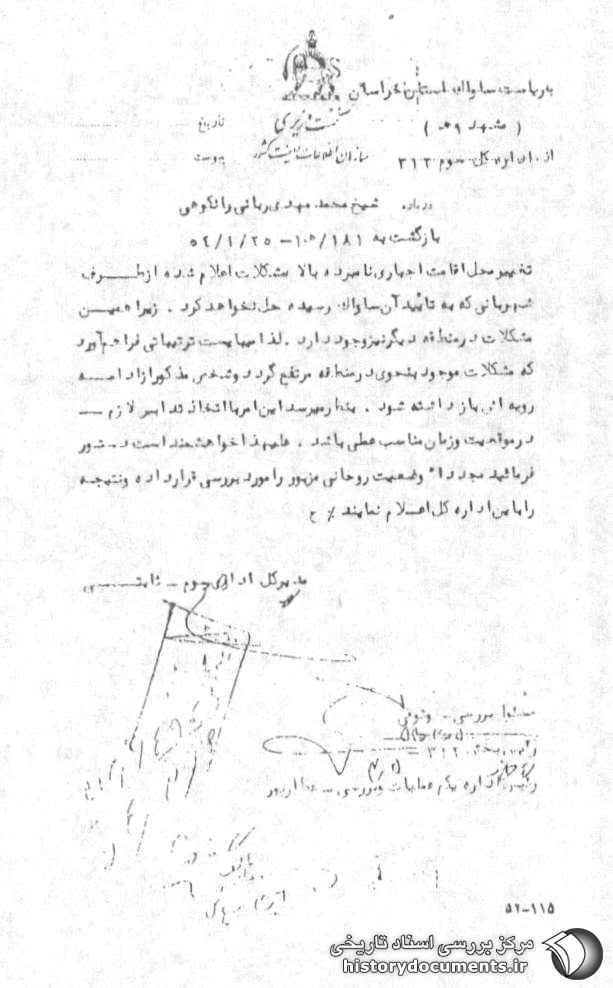 به ریاست ساواک استان خراسان
( مشهد ۹ه‍ )
از اداره کل سوم ۳۱۲
نخست وزیری
سازمان اطلاعات و امنیت کشور
تاریخ
پیوست
درباره شیخ محمد مهدی ربانی رانکوهی
بازگشت به ۱۸۱/ه‍۱۰-۵۲/۱/۲۵
تغییر محل اقامت اجباری نامبرده بالا مشکلات اعلام شده از طرف
شهربانی که به تائید آن ساواک رسیده حل نخواهد کرد . زیرا همین
مشکلات در منطقه دیگر نیز وجود دارد . لذا میبایست ترتیباتی فراهم آورد
که مشکلات موجود بنحوی در منطقه مرتفع گردد و شخص مذکور از ادامه
رویه اش باز داشته شود . بنظر میرسد این امر با اتخاذ تدابیر لازم
در موقعیت و زمان مناسب عملی باشد . علیهذا خواهشمند است دستور
فرمائید مجددا" وضعیت روحانی مزبور را مورد بررسی قرار داده و نتیجه
را باین اداره کل اعلام نمایند ٪ ح
مدیر کل اداره سوم - ثابتی
مسئول بررسی - وثوقی
رئیس بخش ۳۱۲
رئیس اداره یکم عملیات و بررسی
۵۲-۱۱۵
مرکز بررسی اسناد تاریخی
historydocuments.ir